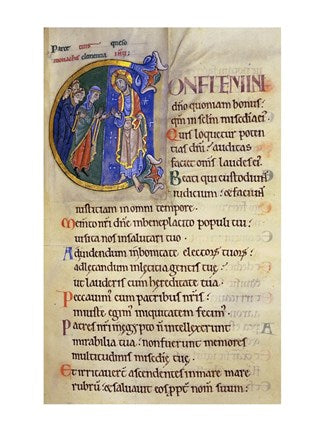 Parce tuis queso
monachis clementia ihū
CONFITEMINI
dño quoniam bonus:
qm̄ in sclm̄ misedia ei
Quis loquetur poten
tias dñi: auditas
faciet om̄s laudes ei
Beati qui custodiunt
iudicium: & faciunt
iusticiam in omni tempore.
Memento nr̄i dñe in beneplacito populi tui:
uisita nos in salutari tuo.
Ad uidendum in bonitate electorū tuorū:
ad letandum in leticia gentis tue:
ut lauderis cum hereditate tua.
Peccauim' cum patribus nr̄is:
iniuste egim' iniquitatem fecim'.
Patres nr̄i in egypto n̄ intellexerunt
mirabilia tua: non fuerunt memores
multitudinis misedie tue.
Et irritauer̄t ascendentes in mare mare
rubrū: & saluauit eos ppt̄ nom̄ suum: